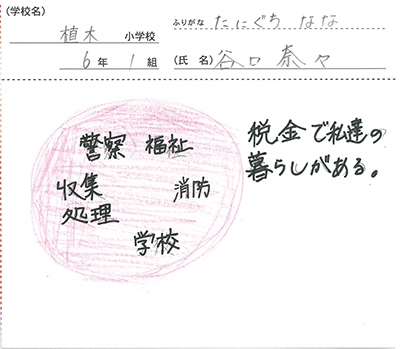 (学校名) 植木 小学校
6年1組
ふりがな たにぐち なな
(氏名) 谷口奈々
警察 福祉
収集 消防
処理
学校
税金で私達の
暮らしがある。